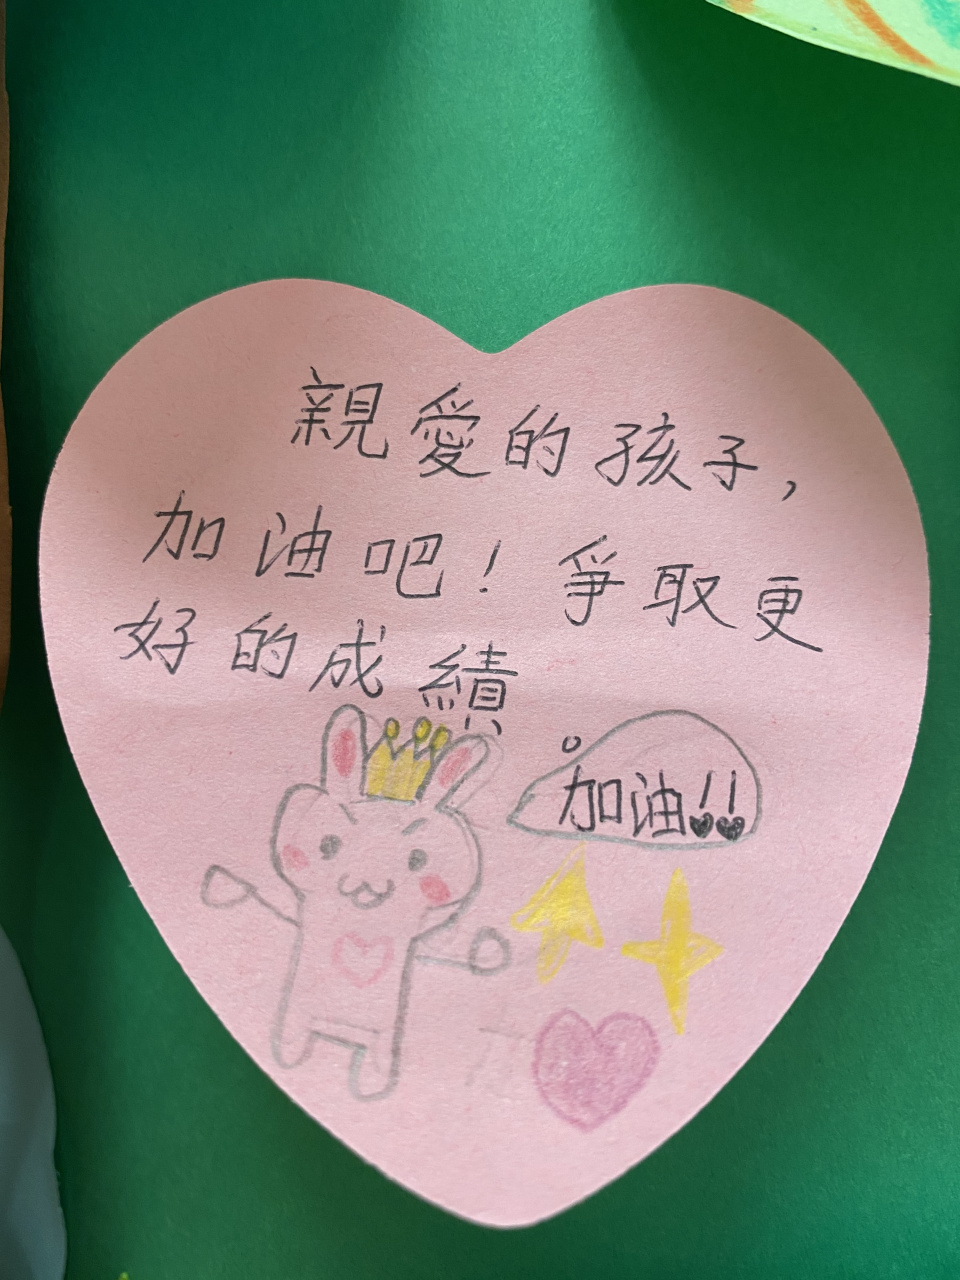 親愛的孩子，
加油吧！爭取更
好的成績
加油!!